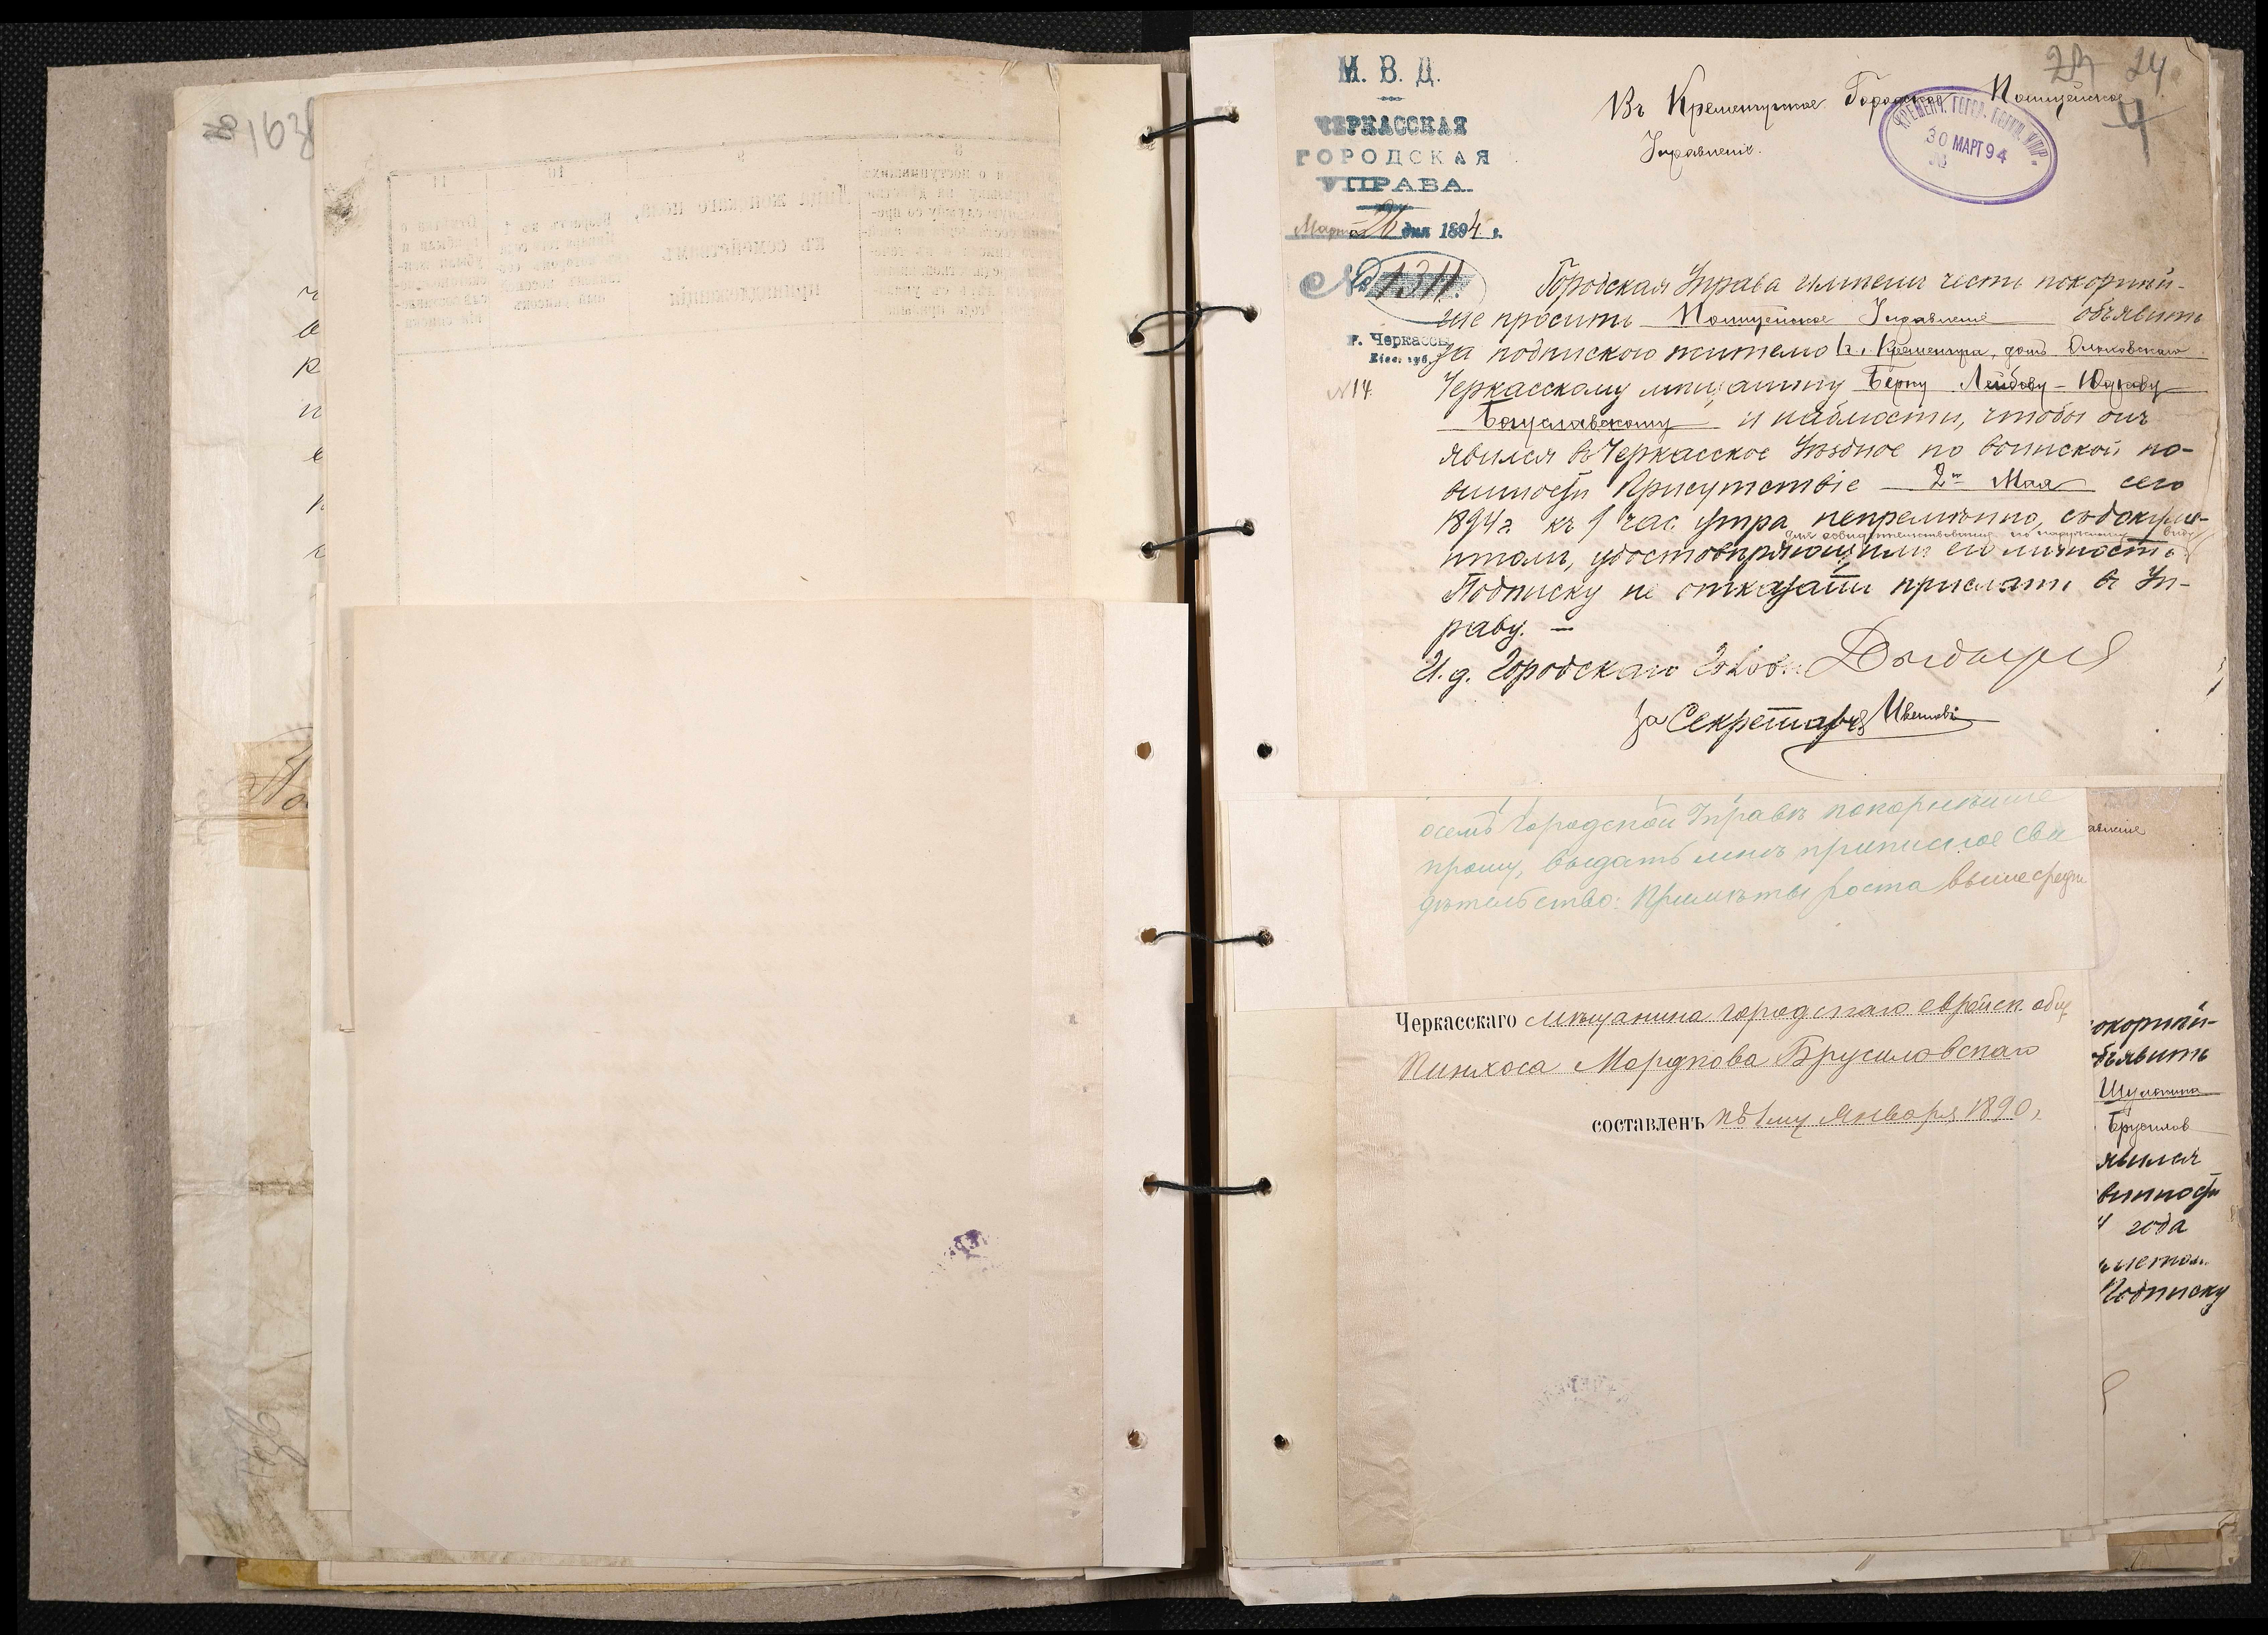 163
М. В. Д.
ЧЕРКАССКАЯ
ГОРОДСКАЯ
УПРАВА.
Марта 26 дня 1894 г.
№ 1311.
г. Черкассы,
Кіев. губ.
№ 14.
23 24
4
Въ Кременчугское Городское Полицейское
Управленіе.
КРЕМЕНЧ. ГОРД. ПОЛИЦ. УПР.
30 МАРТ 94
Городская Управа имѣетъ честь покорнѣй-
ше проситъ Полицейское Управленіе объявить
за подпискою жителю г. Кременчуга, домъ
Черкасскому мѣщанину Берку Лейбову-Юдкову
Богуславскому и наблюсти, чтобы онъ
явился въ Черкасское Уѣздное по воинской по-
винности Присутствіе 2го Мая сего
1894 г. къ 9 час. утра непремѣнно, съ докуме-
для освидѣтельствованія по наружному виду
нтомъ, удостовѣряющимъ его личность.
Подписку не отказать прислать въ Уп-
раву. —
И. д. Городского Голов.
За Секретаря
осемъ Городской Управѣ покорнѣйше
прошу, выдать мнѣ приписное сви
дѣтельство: Примѣты роста выше средн
авленіе
Черкасскаго мѣщанина городскаго еврейск. общ
Пинхоса Мордкова Брусиловскаго
составленъ къ 1му Января 1890 г.
окорнѣй-
бъявить
Шулькина
Брусилов
явился
винности
4 года
Подписку